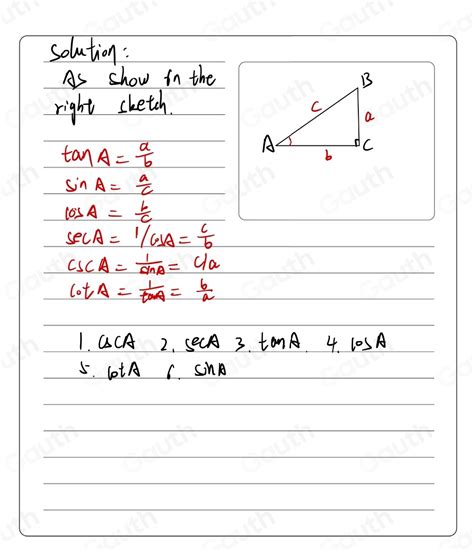 Solution:
As show in the
right sketch.
B
c
a
A
C
b
tan A = a/b
sin A = a/c
cos A = b/c
sec A = 1/cosA = c/b
csc A = 1/sinA = c/a
cot A = 1/tanA = b/a
1. cscA 2. secA 3. tanA. 4. cosA
5. cotA 6. sinA
Gauth